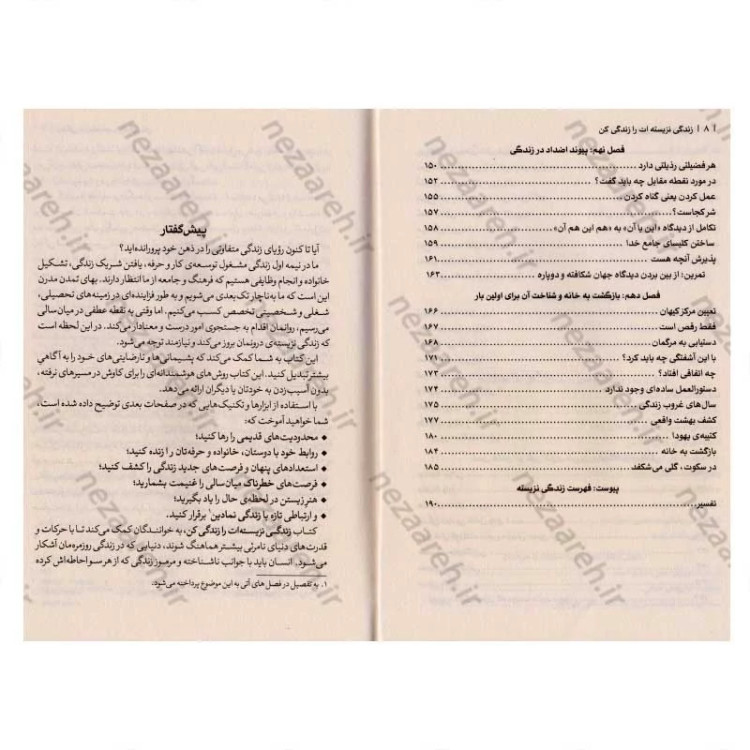 ۸ | زندگی نزیسته ات را زندگی کن
فصل نهم: پیوند اضداد در زندگی
هر فضیلتی رذیلتی دارد ۱۵۰
در مورد نقطه مقابل چه باید گفت؟ ۱۵۲
عمل کردن یعنی گناه کردن ۱۵۵
شر کجاست؟ ۱۵۷
تکامل از دیدگاه «این یا آن» به «هم این هم آن» ۱۵۸
ساختن کلیسای جامع خدا ۱۵۹
پذیرش آنچه هست ۱۶۱
تمرین: از بین بردن دیدگاه جهان شکافته و دوپاره ۱۶۲
فصل دهم: بازگشت به خانه و شناخت آن برای اولین بار
تعیین مرکز کیهان ۱۶۶
فقط رقص است ۱۶۷
دستیابی به مرگمان ۱۶۸
با این آشفتگی چه باید کرد؟ ۱۷۱
چه اتفاقی افتاد؟ ۱۷۲
دستورالعمل ساده‌ای وجود ندارد ۱۷۴
سال‌های غروب زندگی ۱۷۵
کشف بهشت واقعی ۱۷۷
کتیبه‌ی یهودا ۱۸۰
بازگشت به خانه ۱۸۴
در سکوت، گلی می‌شکفد ۱۸۵
پیوست: فهرست زندگی نزیسته
تفسیر ۱۹۰
پیش‌گفتار
آیا تا کنون رؤیای زندگی متفاوتی را در ذهن خود پرورانده‌اید؟
ما در نیمه اول زندگی مشغول توسعه‌ی کار و حرفه، یافتن شریک زندگی، تشکیل
خانواده و انجام وظایفی هستیم که فرهنگ و جامعه از ما انتظار دارند. بهای تمدن مدرن
این است که ما به‌ناچار تک‌بعدی می‌شویم و به طور فزاینده‌ای در زمینه‌های تحصیلی،
شغلی و شخصیتی تخصص کسب می‌کنیم. اما وقتی به نقطه عطفی در میان‌سالی
می‌رسیم، روانمان اقدام به جستجوی امور درست و معنادار می‌کند. در این لحظه است
که زندگی نزیسته‌ی درونمان بروز می‌کند و نیازمند توجه می‌شود.
این کتاب به شما کمک می‌کند که پشیمانی‌ها و نارضایتی‌های خود را به آگاهیِ
بیشتر تبدیل کنید. این کتاب روش‌های هوشمندانه‌ای را برای کاوش در مسیرهای نرفته،
بدون آسیب‌زدن به خودتان یا دیگران ارائه می‌دهد.
با استفاده از ابزارها و تکنیک‌هایی که در صفحات بعدی توضیح داده شده است،
شما خواهید آموخت که:
• محدودیت‌های قدیمی را رها کنید؛
• روابط خود با دوستان، خانواده و حرفه‌تان را زنده کنید؛
• استعدادهای پنهان و فرصت‌های جدید زندگی را کشف کنید؛
• فرصت‌های خطرناک میان‌سالی را غنیمت بشمارید؛
• هنرِ زیستن در لحظه‌ی حال را یاد بگیرید؛
• و ارتباطی تازه با زندگی نمادین۱ برقرار کنید.
کتاب زندگی نزیسته‌ات را زندگی کن، به خوانندگان کمک می‌کند تا با حرکات و
قدرت‌های دنیای نامرئی بیشتر هماهنگ شوند، دنیایی که در زندگی روزمره‌مان آشکار
می‌شود. انسان باید با جوانب ناشناخته و مرموز زندگی که از هر سو احاطه‌اش کرده
۱. به تفصیل در فصل های آتی به این موضوع پرداخته می‌شود.
nezaareh.ir